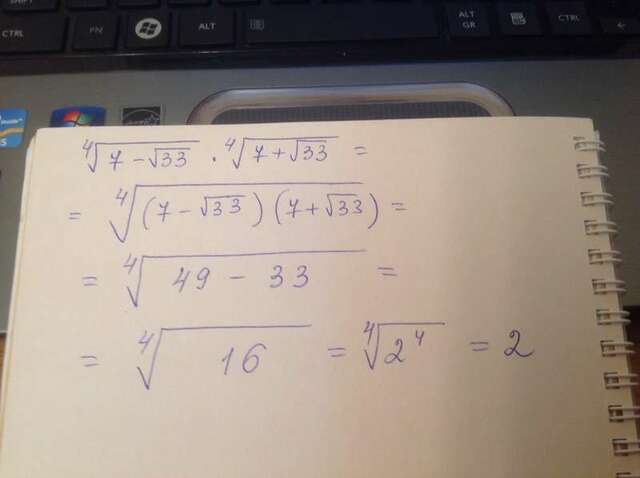 CTRL PN ALT ALT GR CTRL
⁴√(7 − √33) · ⁴√(7 + √33) =
= ⁴√((7 − √33)(7 + √33)) =
= ⁴√(49 − 33) =
= ⁴√16 = ⁴√(2⁴) = 2